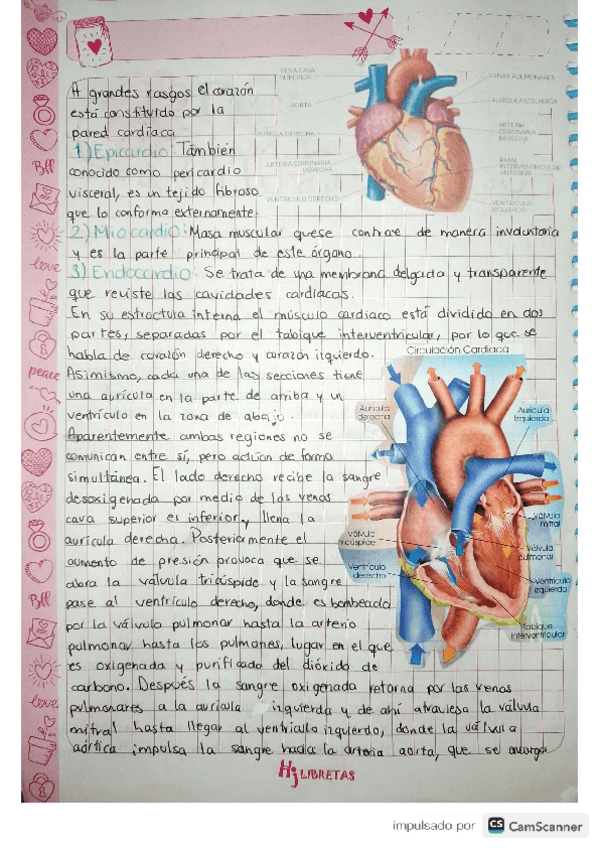 A grandes rasgos el corazón
está constituido por la
pared cardíaca
1) Epicardio: También
conocido como pericardio
visceral, es un tejido fibroso
que lo conforma externamente.
2) Miocardio: Masa muscular que se contrae de manera involuntaria
y es la parte principal de este órgano.
3) Endocardio: Se trata de una membrana delgada y transparente
que reviste las cavidades cardíacas.
En su estructura interna el músculo cardiaco está dividido en dos
partes, separadas por el tabique interventricular, por lo que se
habla de corazón derecho y corazón izquierdo.
Asimismo, cada una de las secciones tiene
una aurícula en la parte de arriba y un
ventrículo en la zona de abajo.
Aparentemente ambas regiones no se
comunican entre sí, pero actúan de forma
simultánea. El lado derecho recibe la sangre
desoxigenada por medio de las venas
cava superior e inferior y llena la
aurícula derecha. Posteriormente el
aumento de presión provoca que se
abra la válvula tricúspide y la sangre
pase al ventrículo derecho, donde es bombeada
por la válvula pulmonar hasta la arteria
pulmonar hasta los pulmones, lugar en el que
es oxigenada y purificada del dióxido de
carbono. Después la sangre oxigenada retorna por las venas
pulmonares a la aurícula izquierda y de ahí atraviesa la válvula
mitral hasta llegar al ventrículo izquierdo, donde la válvula
aórtica impulsa la sangre hacia la arteria aorta, que se encarga
VENA CAVA
SUPERIOR
AORTA
AURICULA DERECHA
ARTERIA CORONARIA
DERECHA
VENTRICULO DERECHO
VENAS PULMONARES
AURICULA IZQUIERDA
ARTERIA
CORONARIA
RAMA
INTERVENTRICULAR
ANTERIOR
VENTRICULO
IZQUIERDO
Circulación Cardiaca
Aurícula
derecha
Aurícula
Izquierda
Válvula
mitral
Válvula
tricúspide
Válvula
pulmonar
Ventrículo
derecho
Ventrículo
izquierdo
Tabique
interventricular
BFF
love
peace
BFF
love
Hj LIBRETAS
impulsado por CS CamScanner